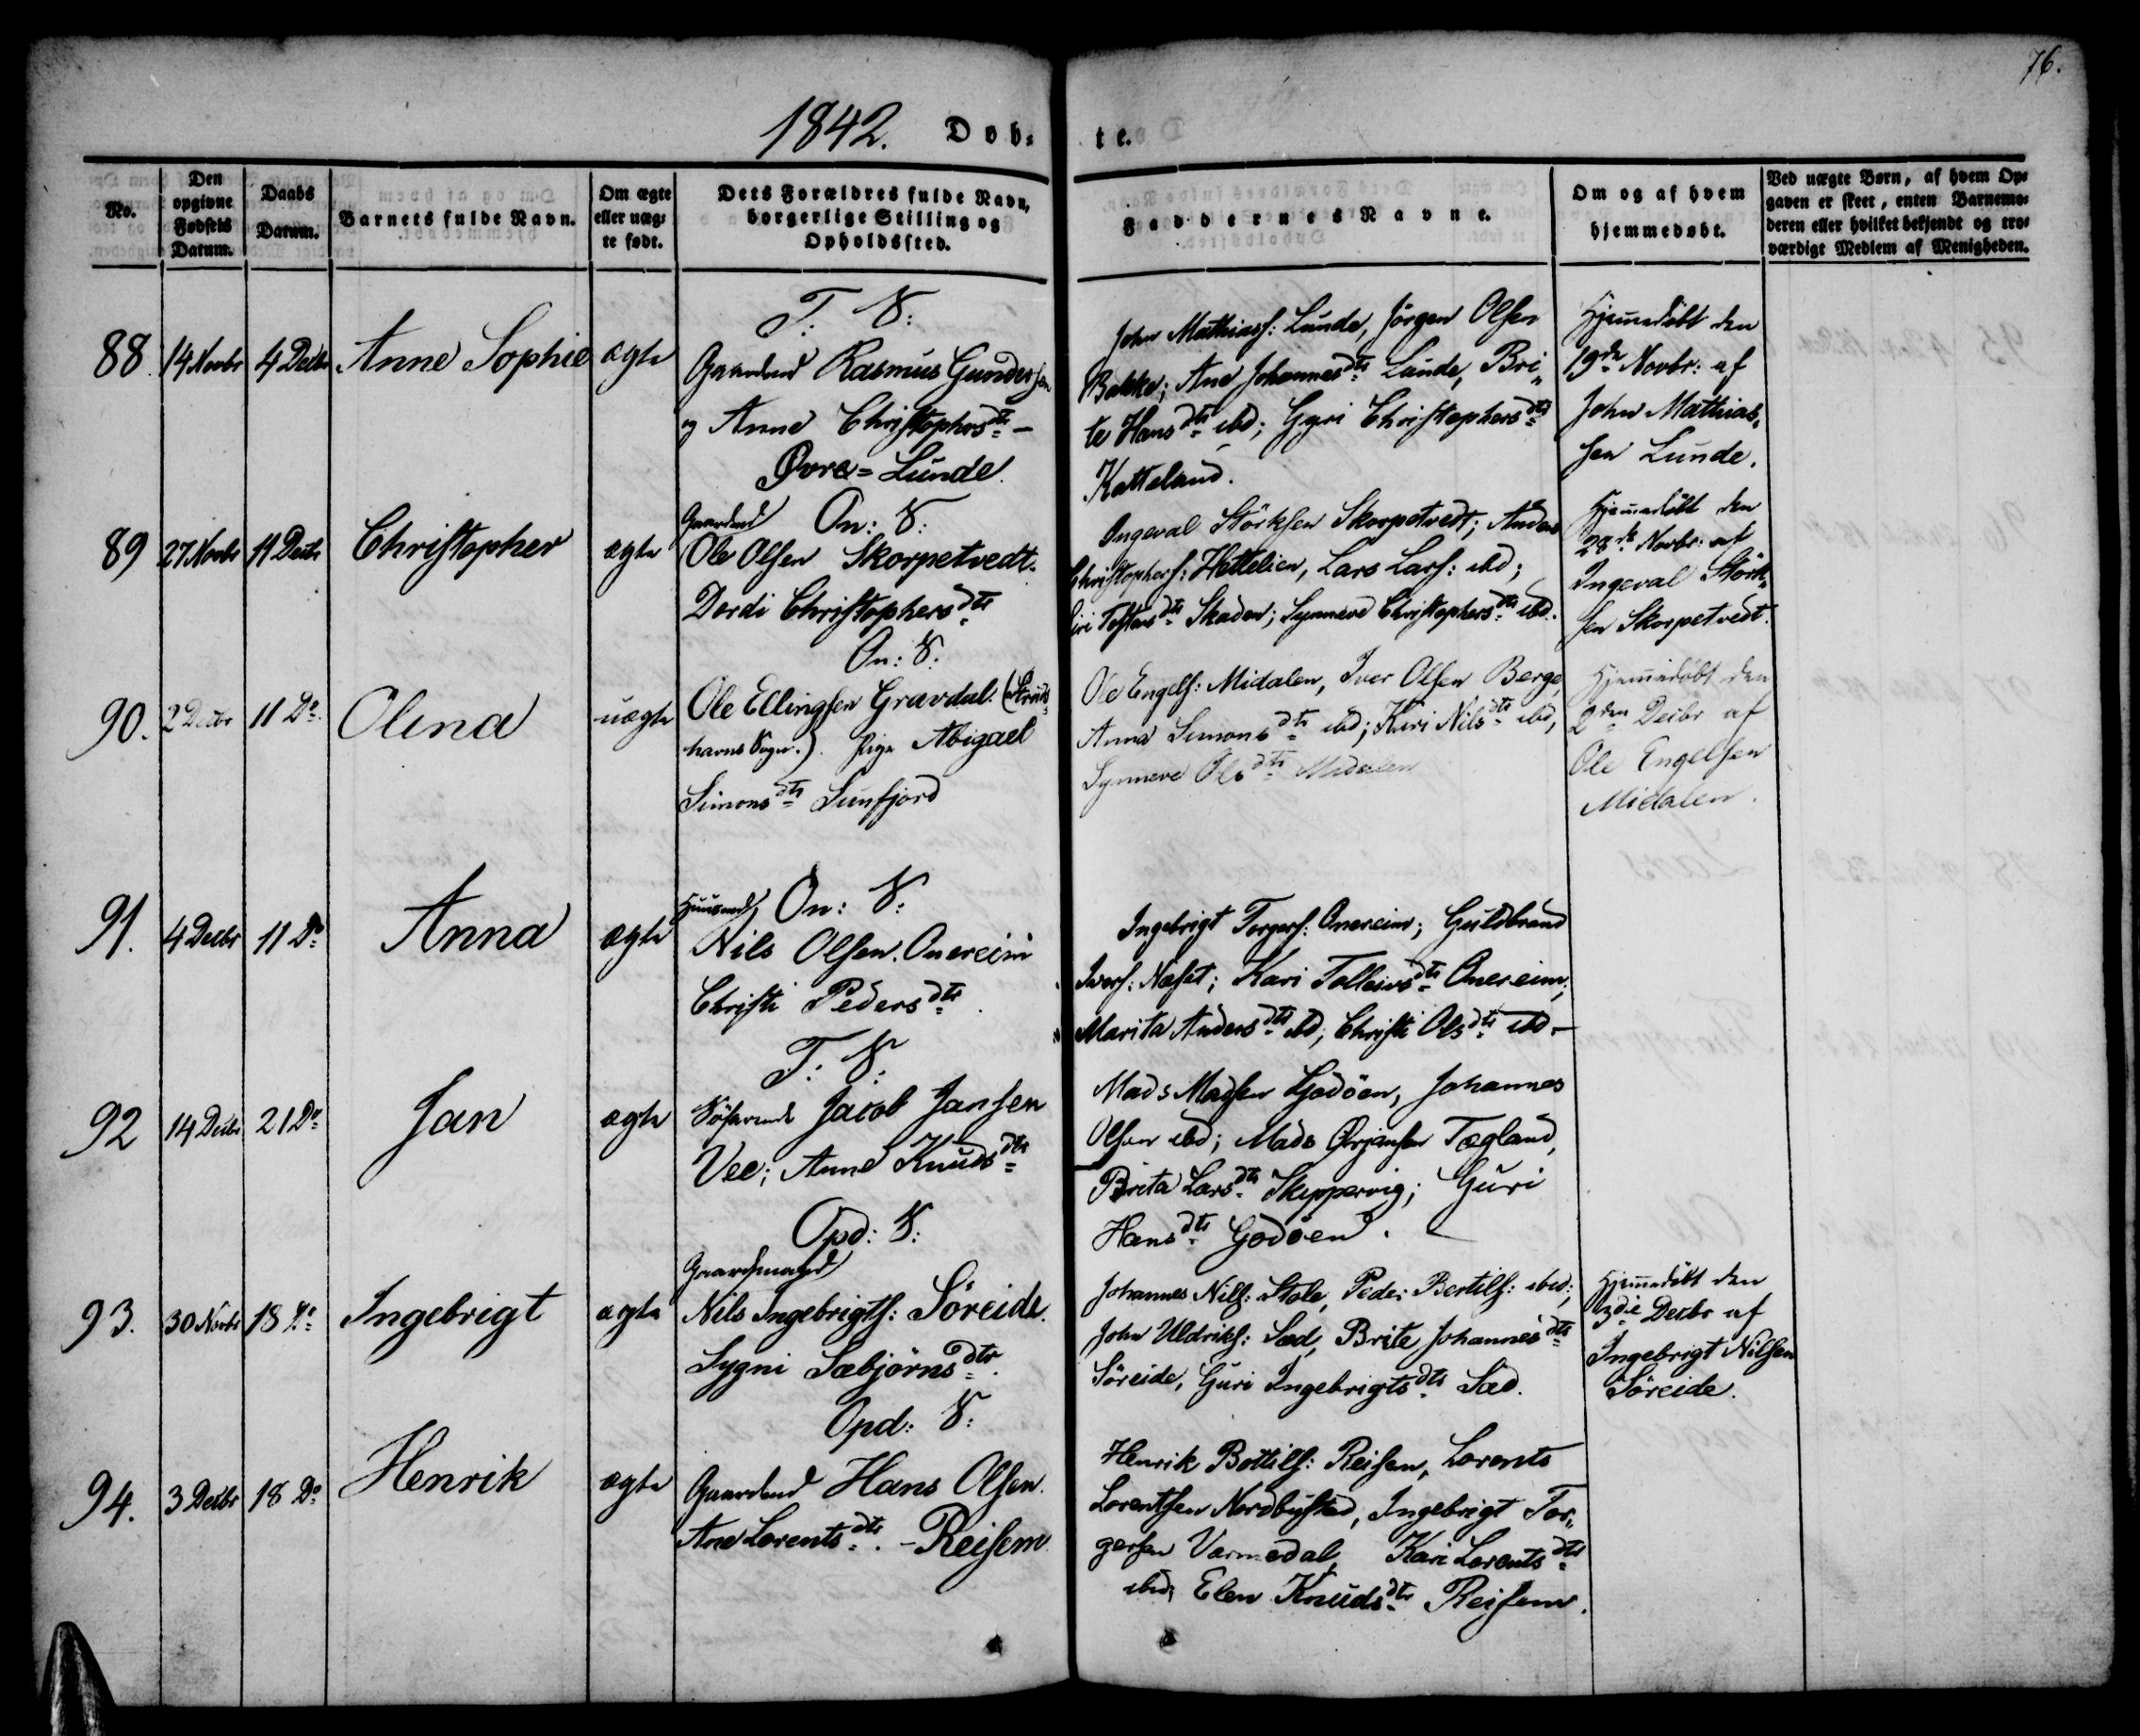 76.
1842. Døb-
te.
No.
Den opgivne Fødsels Datum.
Daabs Datum.
Barnets fulde Navn.
Om ægte eller uægte født.
Dets Forældres fulde Navn, borgerlige Stilling og Opholdssted.
Faddernes Navne.
Om og af hvem hjemmedøbt.
Ved uægte Børn, af hvem Opgaven er skeet, enten Barnemoderen eller hvilket bekjendt og troværdigt Medlem af Menigheden.
88 14 Novbr 4 Decbr Anne Sophie ægte
T: S:
Gaardmd Rasmus Gundersen
og Anne Christophersdtr -
Øvre=Lunde.
John Mathiass: Lunde, Jörgen Olsen
Bakke; Ane Johannesdtr Lunde, Bri„
te Hansdtr ibd; Gyri Christophersdtr
Katteland.
Hjemmedöbt den
19de Novbr: af
John Mathias„
sen Lunde.
89 27 Novbr 11 Decbr Christopher ægte
Gaardmd On: S:
Ole Olsen Skorpetvedt.
Dordi Christophersdtr
Ingeval Störksen Skorpetvedt; Anders
Christophers: Hettelien, Lars Lars: ibd;
Siri Tostensdtr Skaden; Synneve Christophersdtr ibd.
Hjemmedöbt den
28de Novbr: af
Ingeval Störk„
sen Skorpetvedt.
90. 2 Decbr 11 Do Olena uægte
On: S:
Ole Ellingsen Gravdal (Struds„
havns Sogn.). Pige Abigael
Simonsdtr Sunfjord
Ole Engels: Midalen, Iver Olsen Berge,
Anna Simonsdtr ibd; Kari Nilsdtr ibd,
Synneve Olsdtr Midalen
Hjemmedöbt den
2den Decbr af
Ole Engelsen
Midalen.
91. 4 Decbr 11 Do Anna ægte
Huusmd On: S:
Nils Olsen. Onereim
Christi Pedersdtr.
Ingebrigt Torgers: Onereim; Guldbrand
Ivers: Næset; Kari Tolleivsdtr Onereim;
Marita Andersdtr ibd; Christi Olsdtr ibd -
92 14 Decbr 21 Do Jan ægte
T: S:
Söfarende Jacob Jansen
Vee; Anne Knudsdtr
Mads Madsen Godöen, Johannes
Olsen ibd; Mads Ørjansen Tægland,
Brita Larsdtr Skippervig; Guri
Hansdtr Godöen.
93. 30 Novbr 18 Do Ingebrigt ægte
Opd: S:
Gaardmand
Nils Ingebrigts: Söreide.
Sygni Sæbjörnsdtr.
Johannes Nils: Stole, Peder Bertils: ibd;
John Uldriks: Sæd, Brite Johannesdtr
Söreide, Guri Ingebrigtsdtr Sæd.
Hjemmedöbt den
3die Decbr af
Ingebrigt Nilsen
Söreide.
94. 3 Decbr 18 Do Henrik ægte
Opd: S:
Gaardmd Hans Olsen.
Ane Lorentsdtr. - Reisem
Henrik Bottils: Reisem, Lorents
Lorentsen Nordbustad, Ingebrigt Tor„
gersen Varmedal, Kari Lorentsdtr
ibd, Elen Knudsdtr Reisem.